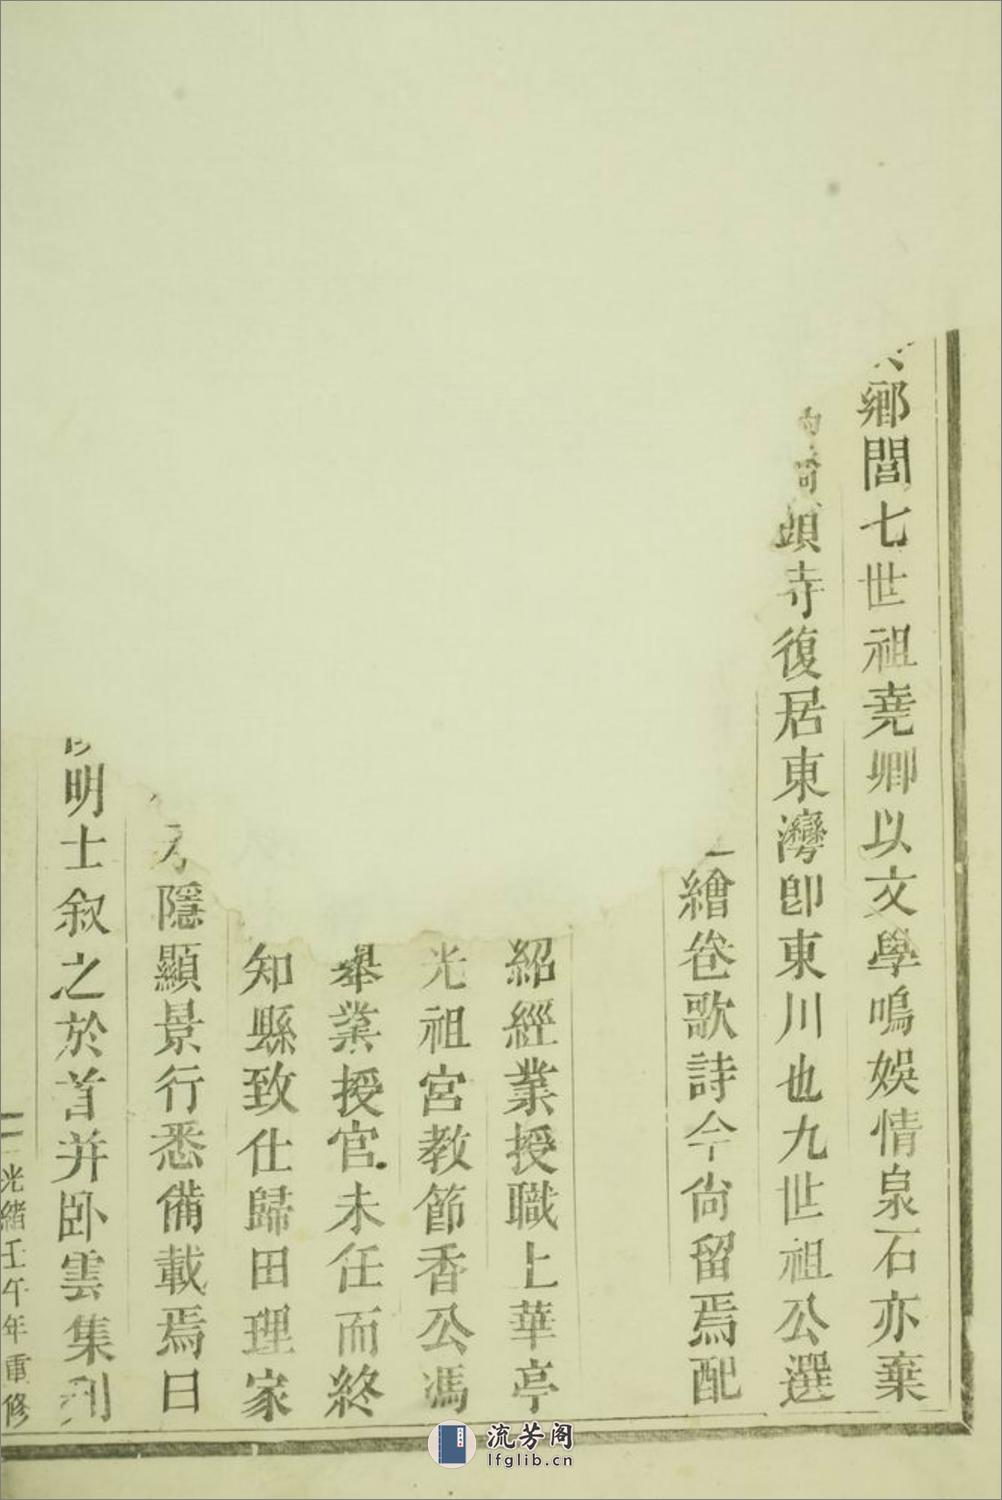 鄉閭七世祖堯卿以文學鳴娛情泉石亦棄
頭寺復居東灣卽東川也九世祖公選
繪卷歌詩今尙留焉配
紹經業授職上華亭
光祖宮教節香公馮
舉業授官未任而終
知縣致仕歸田理家
隱顯景行悉備載焉曰
明士叙之於首并卧雲集刊
光緒壬午年重修
流芳阁
lfglib.cn